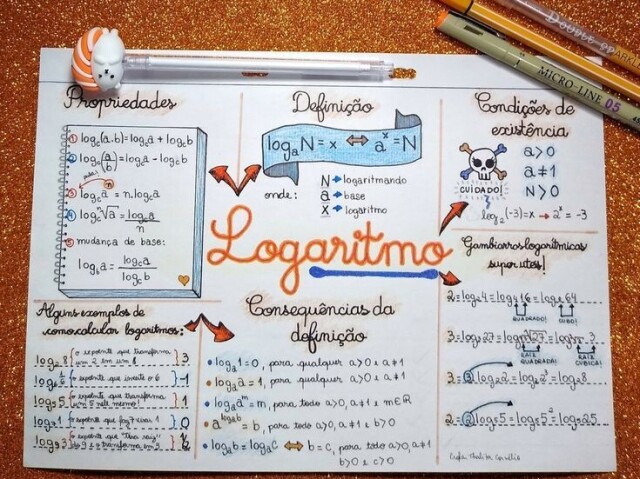 DOUBLE SPARKLE
MICRO-LINE 05
Propriedades
① log_c(a.b)=log_c a + log_c b
② log_c(a/b)=log_c a - log_c b
③ log_c aⁿ = n.log_c a
④ log_c ⁿ√a = log_c a / n
⑤ mudança de base:
log_b a = log_c a / log_c b
Definição
log_a N = x ⇔ aˣ = N
onde:
N → logaritmando
a → base
x → logaritmo
Condições de
existência
a>0
a≠1
N>0
CUIDADO!
log₂(-3)=x → 2ˣ = -3
Logaritmo
Gambiarras logarítmicas
super úteis!
QUADRADO!
CUBO!
RAIZ QUADRADA!
RAIZ CÚBICA!
3 = 3 log₂ 2 = log₂ 2³ = log₂ 8
2 = 2 log₅ 5 = log₅ 5² = log₅ 25
Alguns exemplos de
como calcular logaritmos:
log₂ 8 o expoente que transforma um 2 em um 8 3
expoente que inverte o 6 -1
log₅ 5 expoente que transforma um 5 nele mesmo! 1
expoente que faz 7 virar 1 0
expoente que "tira raiz" do 9 e o transforma em 3 ½
Consequências da
definição
• log_a 1 = 0, para qualquer a>0 e a≠1
• log_a a = 1, para qualquer a>0 e a≠1
• log_a aᵐ = m, para todo a>0, a≠1 e m∈ℝ
• a^(log_a b) = b, para todo a>0, a≠1 e b>0
• log_a b = log_a c ⇔ b = c, para todo a>0, a≠1
b>0 e c>0